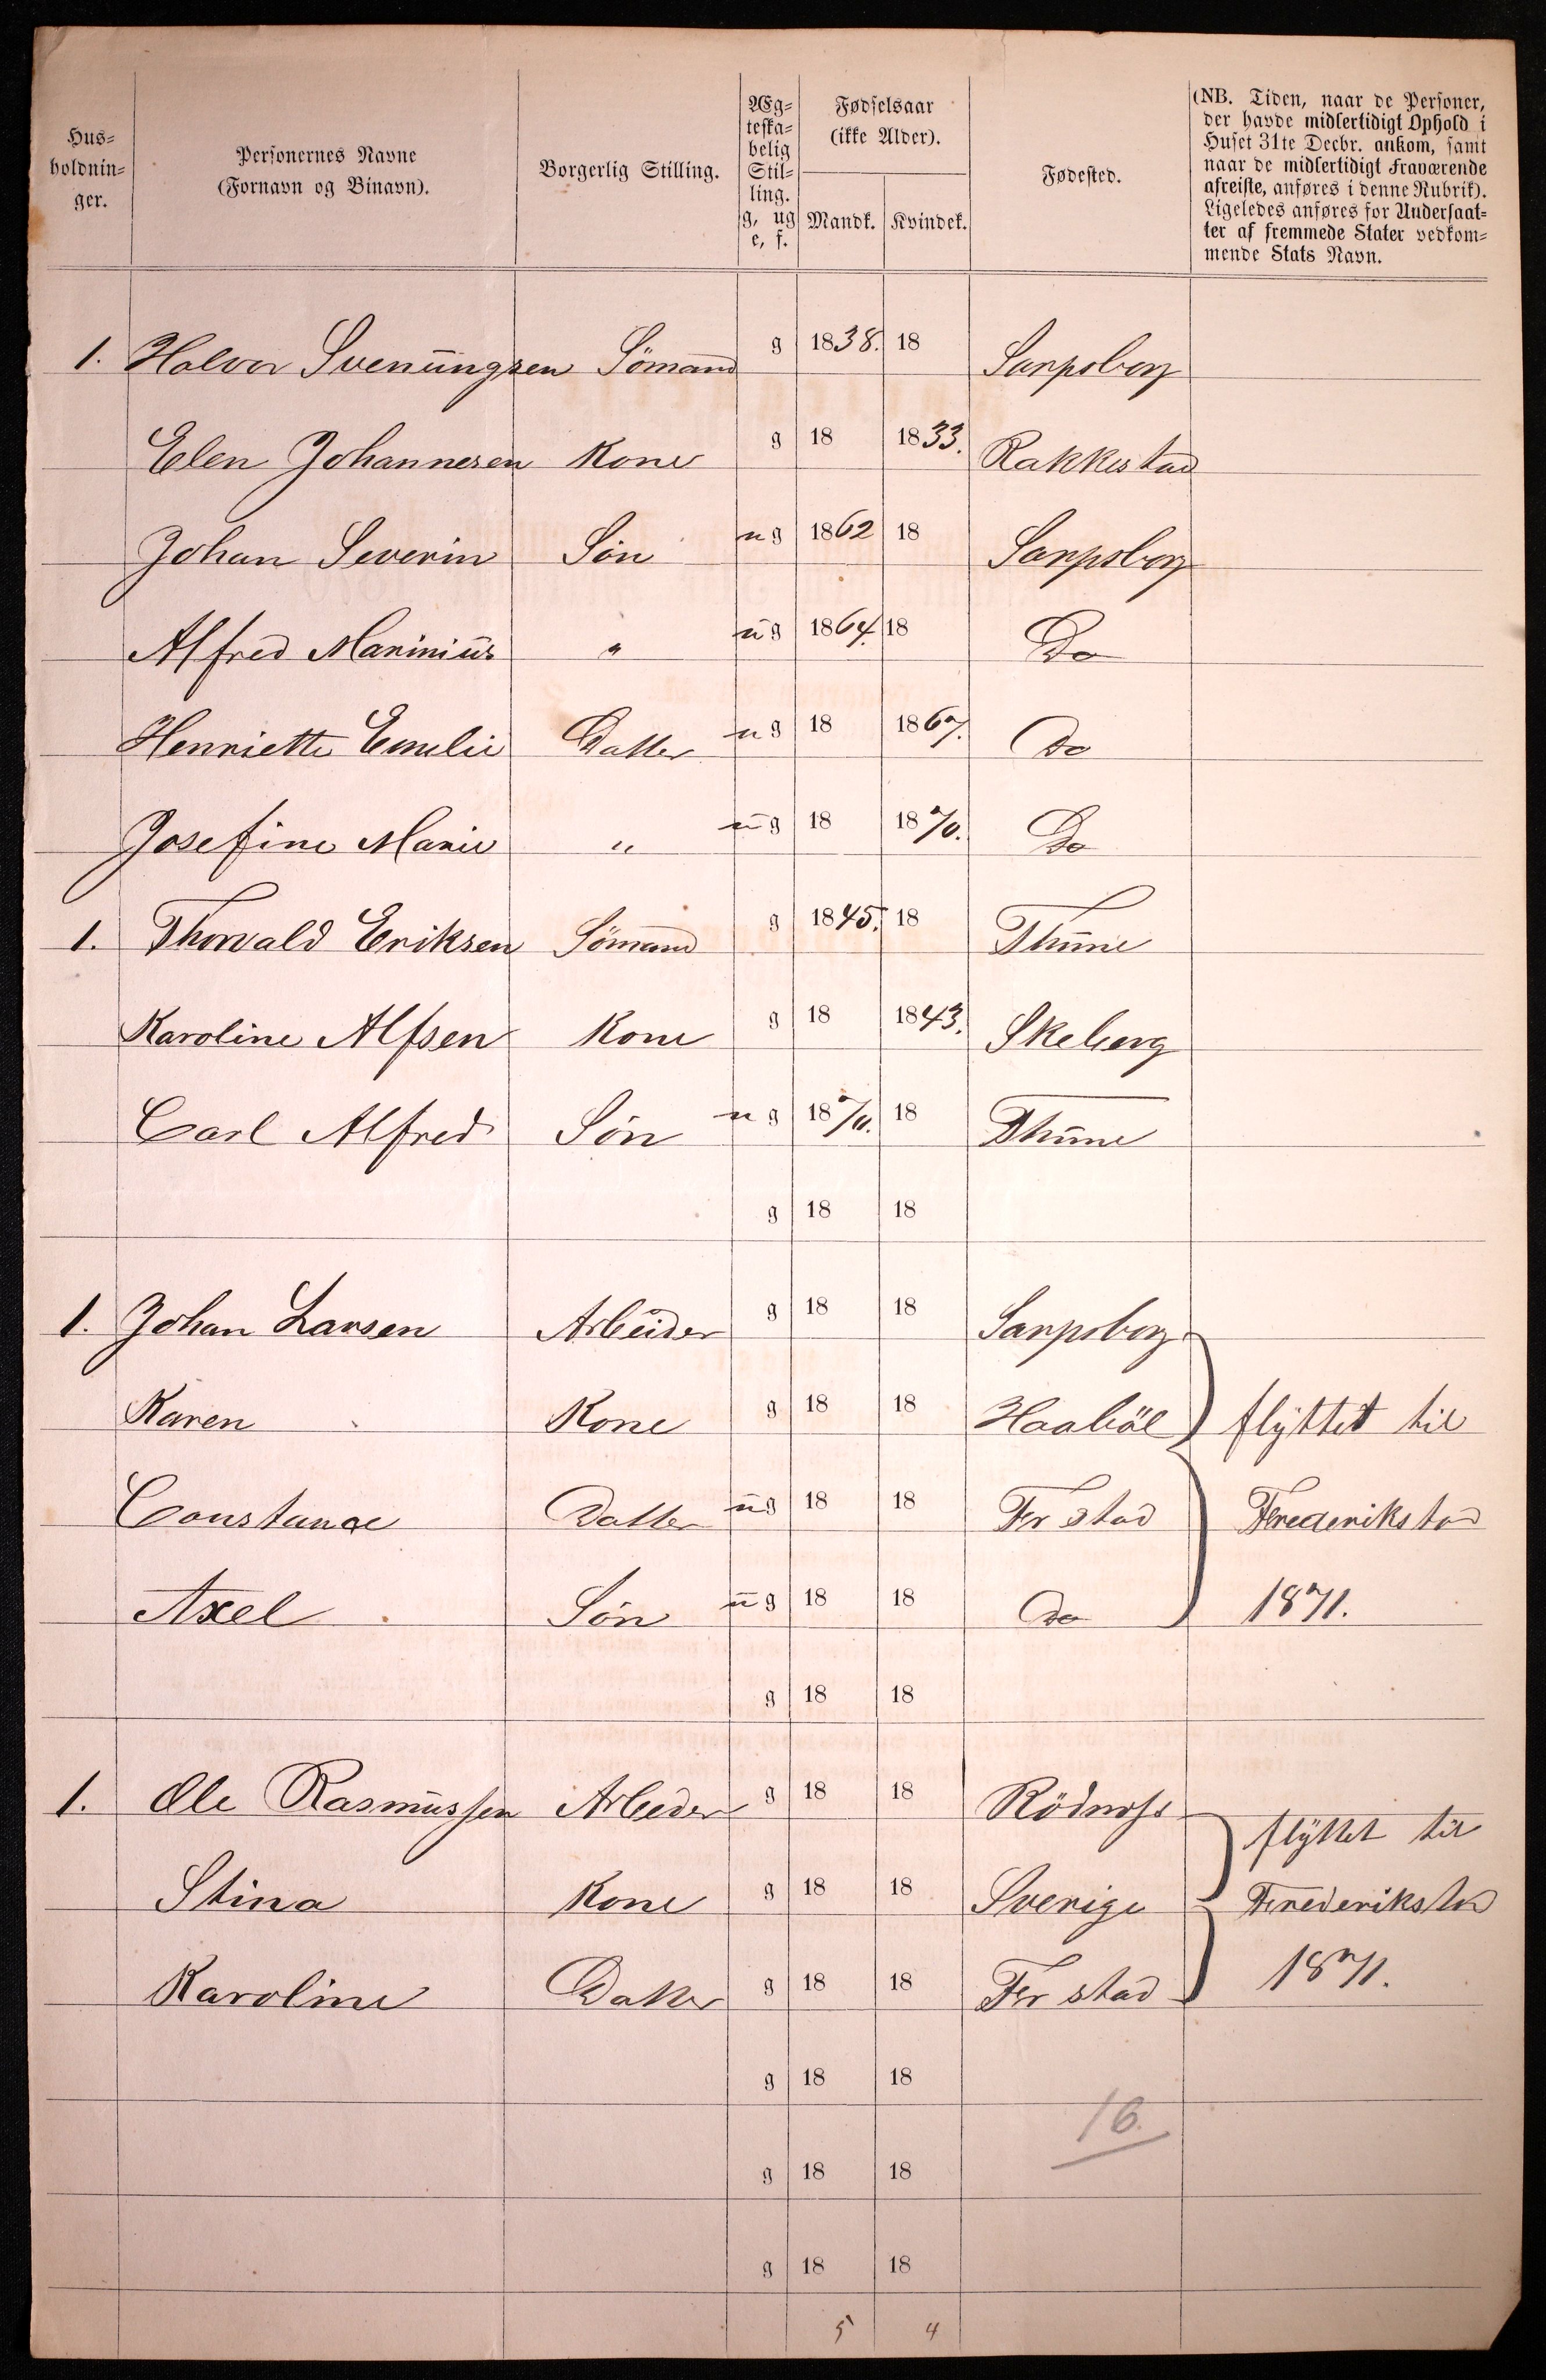 Hus=
holdnin=
ger.
Personernes Navne
(Fornavn og Binavn).
Borgerlig Stilling.
Æg=
teska=
belig
Stil=
ling.
g, ug
e, f.
Fødselsaar
(ikke Alder).
Mandk. Kvindek.
Fødested.
(NB. Tiden, naar de Personer,
der havde midlertidigt Ophold i
Huset 31te Decbr. ankom, samt
naar de midlertidigt Fraværende
afreiste, anføres i denne Rubrik).
Ligeledes anføres for Undersaat=
ter af fremmede Stater vedkom=
mende Stats Navn.
1. Halvor Svenungsen Sömand g 1838. 18 Sarpsborg
Elen Johannesen Kone g 18 1833. Rakkestad
Johan Severin Sön ug 1862 18 Sarpsborg
Alfred Marinius " ug 1864. 18 Do
Henriette Emelie Datter ug 18 1867. Do
Josefine Marie " ug 18 1870. Do
1. Thorvald Eriksen Sömand g 1845. 18 Thune
Karoline Alfsen Kone g 18 1843. Skeberg
Carl Alfred Sön ug 1870. 18 Thune
g 18 18
1. Johan Larsen Arbeider g 18 18 Sarpsborg
Karen Kone g 18 18 Haaböl flyttet til
Constance Datter ug 18 18 Frstad Frederikstad
Axel Sön ug 18 18 Do 1871.
g 18 18
1. Ole Rasmussen Arbeider g 18 18 flyttet til
Stina Kone g 18 18 Sverige Frederikstad
Karoline Datter g 18 18 Frstad 1871.
g 18 18
16.
g 18 18
g 18 18
5 4